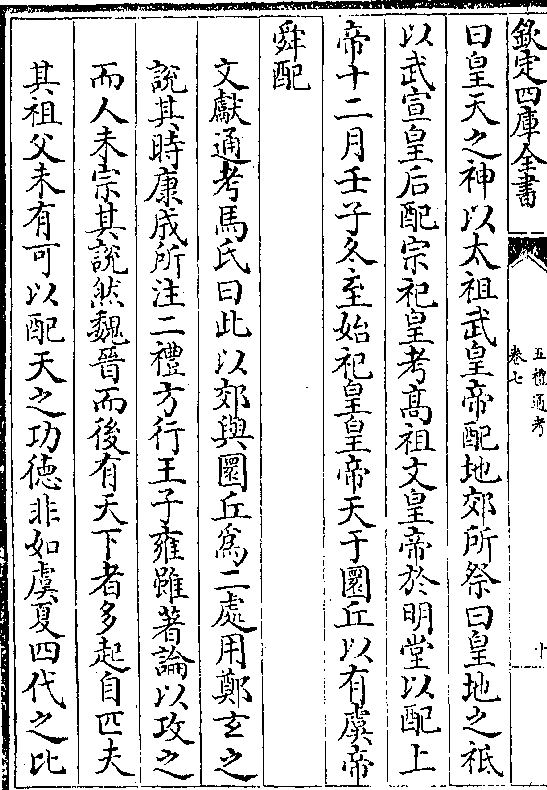 欽定四庫全書
五禮通考
卷七
十
曰皇天之神以太祖武皇帝配地郊所祭曰皇地之祇
以武宣皇后配宗祀皇考髙祖文皇帝於明堂以配上
帝十二月壬子冬至始祀皇皇帝天于圜丘以有虞帝
舜配
文獻通考馬氏曰此以郊與圜丘為二處用鄭𤣥之
說其時康成所注二禮方行王子雍雖著論以攻之
而人未宗其說然魏晉而後有天下者多起自匹夫
其祖父未有可以配天之功德非如虞夏四代之比